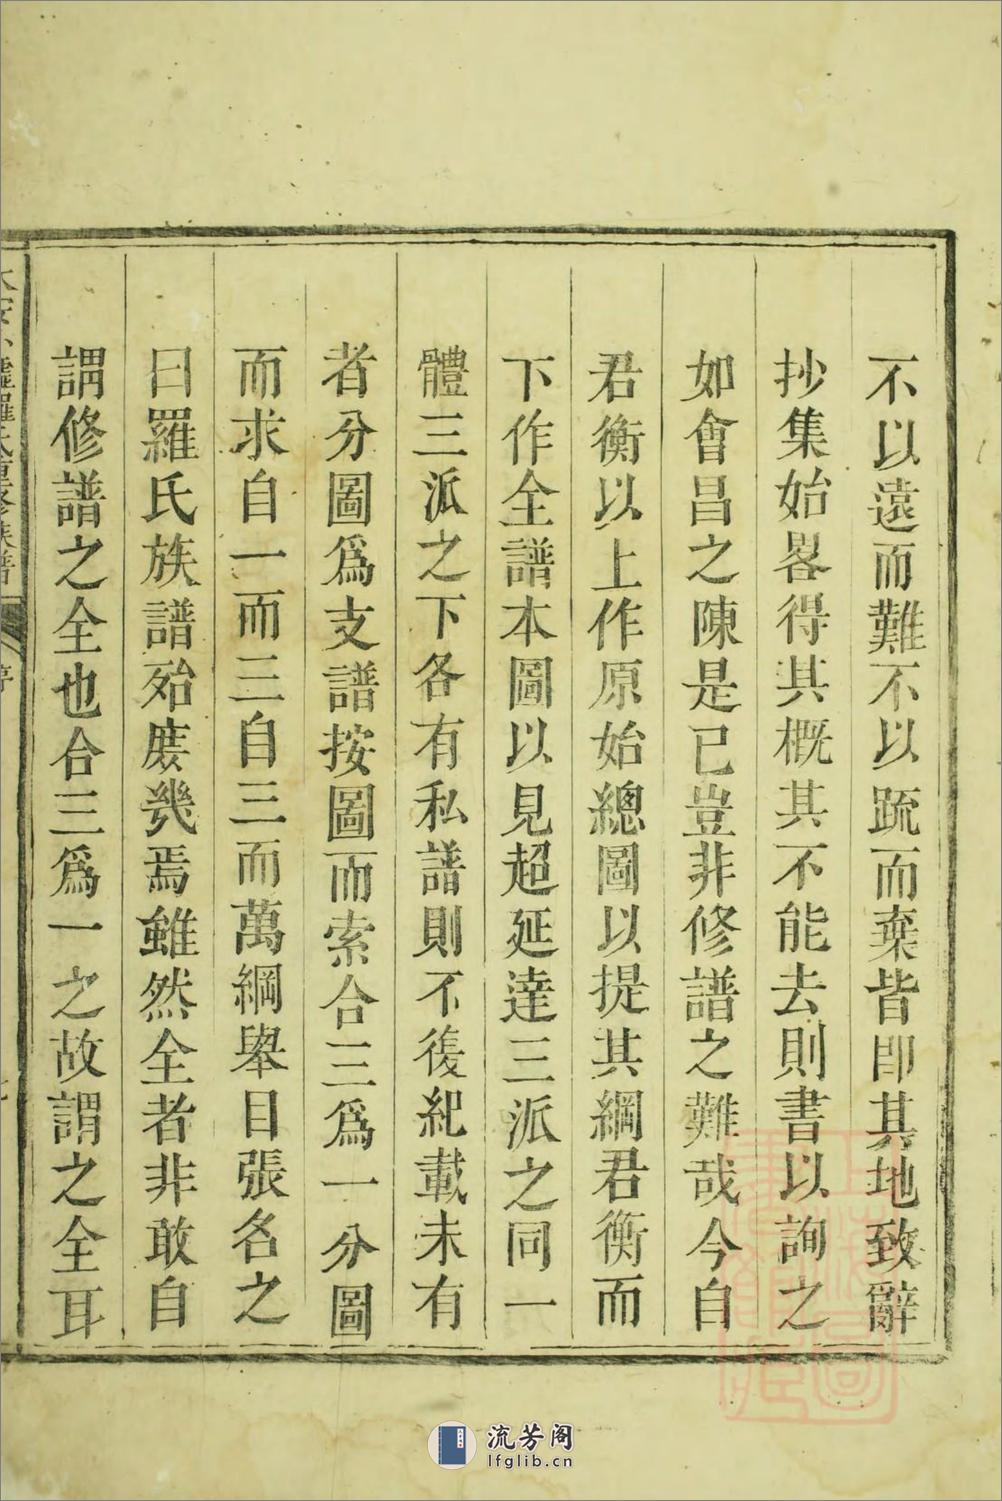 不以遠而難不以䟽而棄皆卽其地致辭
抄集始畧得其概其不能去則書以詢之
如會昌之陳是已豈非修譜之難哉今自
君衡以上作原始總圖以提其綱君衡而
下作全譜本圖以見超延達三派之同一
體三派之下各有私譜則不復紀載未有
者分圖爲支譜按圖而索合三爲一分圖
而求自一而三自三而萬綱舉目張名之
曰羅氏族譜殆庶㡬焉雖然全者非敢自
謂修譜之全也合三爲一之故謂之全耳
羅氏重修族譜
序
流芳阁
lfglib.cn